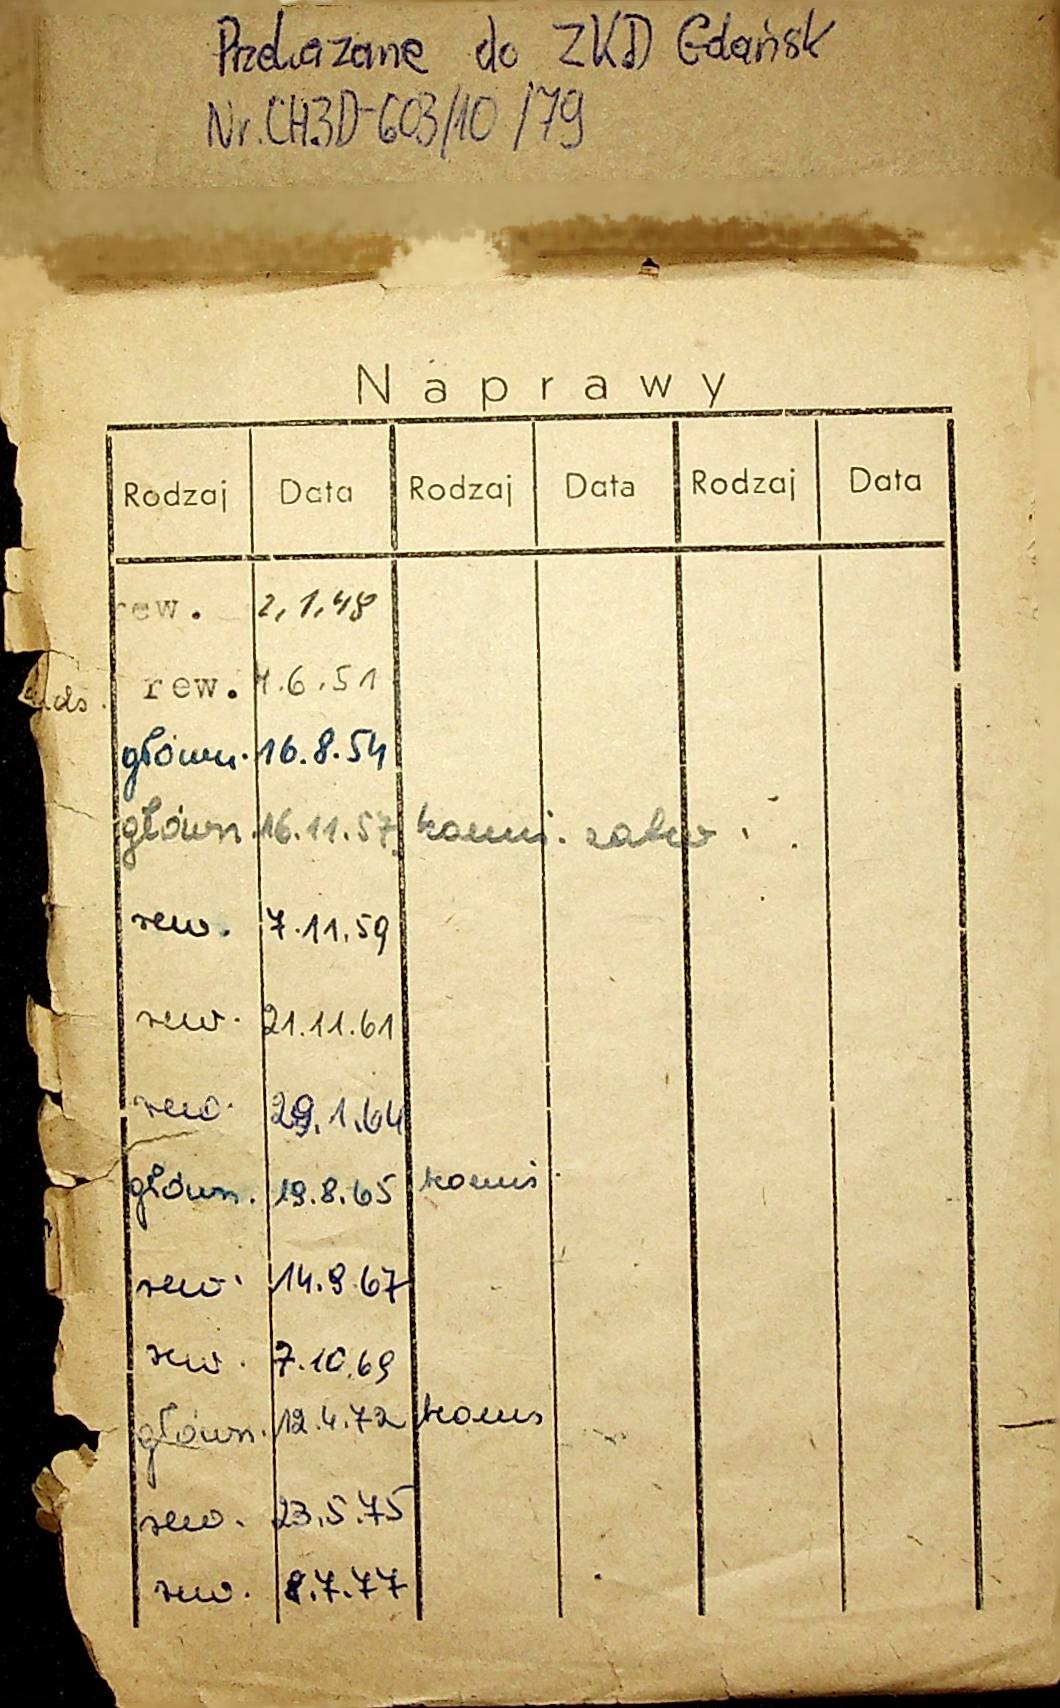 Przekazane do ZKD Gdańsk
Nr. CH3D-603/10/79
Naprawy
Rodzaj Data Rodzaj Data Rodzaj Data
rew. 2.1.48
rew. 4.6.51
główn. 16.8.54
główn. 16.11.57
rew. 7.11.59
rew. 21.11.61
rew. 29.1.64
główn. 19.8.65
rew. 14.9.67
rew. 7.10.69
główn. 12.4.72
rew. 23.5.75
rew. 8.7.77